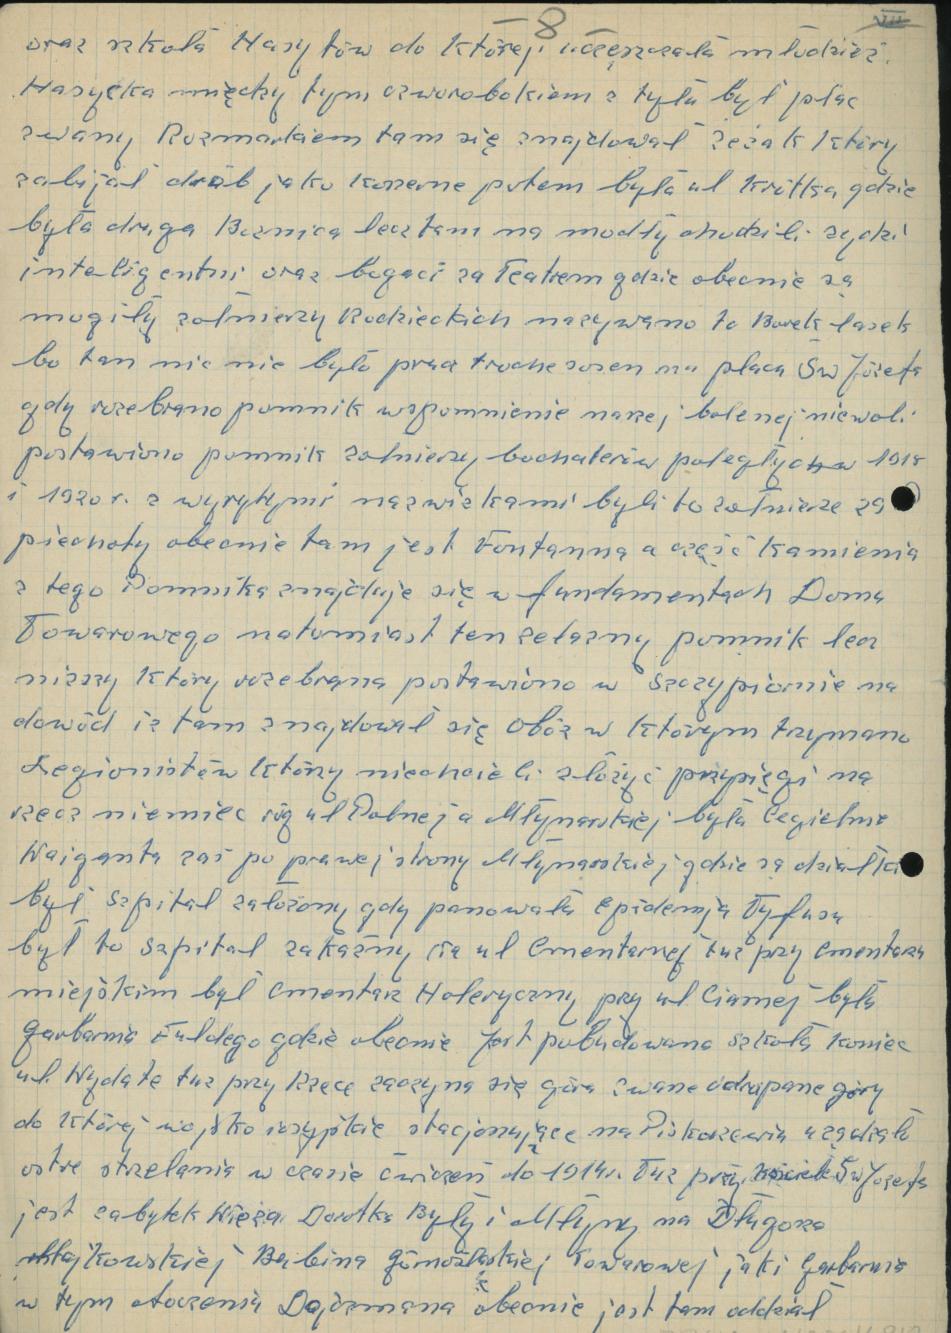 – 8
VII
oraz szkoła Hasytów do której uczęszczała młodzież
Hasycka między tym czworobokiem z tyłu był plac
zwany Rozmarkiem tam się znajdował Żeżak który
zabijał drób jako koszerne potem była ul Krótka gdzie
była druga Bożnica lecz tam na modły chodzili żydzi
inteligentni oraz bogaci za Teatrem gdzie obecnie są
mogiły żołnierzy Radzieckich nazywano to Borek lasek
bo tam nic nie było prucz troche sosen na placu Św Józefa
gdy rozebrano pomnik wspomnienie naszej bolenej niewoli
postawiono pomnik żołnierzy bochaterów poległych w 1918
i 1920 r. z wyrytymi nazwiskami byli to żołnierze 29
piechoty obecnie tam jest Fontanna a część kamienia
z tego Pomnika znajduje się w fundamentach Domu
Towarowego natomiast ten żelazny pomnik lecz
niższy który rozebrano postawiono w Szczypiornie na
dowód iż tam znajdował się Obóz w którym trzymano
Legionistów którzy niechcieli złożyć przysięgi na
rzecz niemiec róg ul Polnej a Młynarskiej była Cegielnia
Waiganta zaś po prawej strony Młynarskiej gdzie są działki
był Szpital założony gdy panowała Epidemja Tyfusu
był to Szpital zakaźny na ul Cmentarnej tuż przy Cmentarzu
miejskim był Cmentarz Holeryczny przy ul Ciasnej była
Garbarnia Fuldego gdzie obecnie jest pobudowana szkoła koniec
ul. Wydarte tuż przy Rzece zaczyna się góra zwane odrapane góry
do której wojsko rosyjskie stacjonujące na Piskorzewiu urządzało
ostre strzelania w czasie ćwiczeń do 1914 r. Tuż przy kościele Św Józefa
jest zabytek Wieża Dorotka Były i Młyny na Długosza
Majkowskiej Babina Górnośląskiej Towarowej jak i Garbarnia
w tym otoczeniu Dajczmana obecnie jest tam oddział